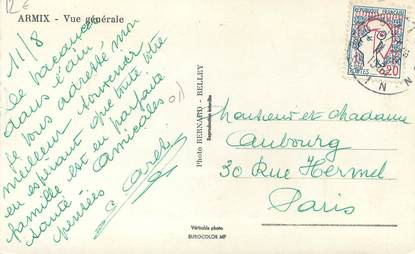 12 €
ARMIX - Vue générale
11/8
De vacances
dans l'ain
je vous adresse mon
meilleur souvenir
en espérant que toute votre
famille est en parfaite
santé. amicales
pensées
Photo BERNARD - BELLEY
Reproduction interdite
REPUBLIQUE FRANÇAISE
POSTES
0,20
Monsieur et Madame
Aubourg
30 Rue Hermel
Paris
Véritable photo
EUROCOLOR MF